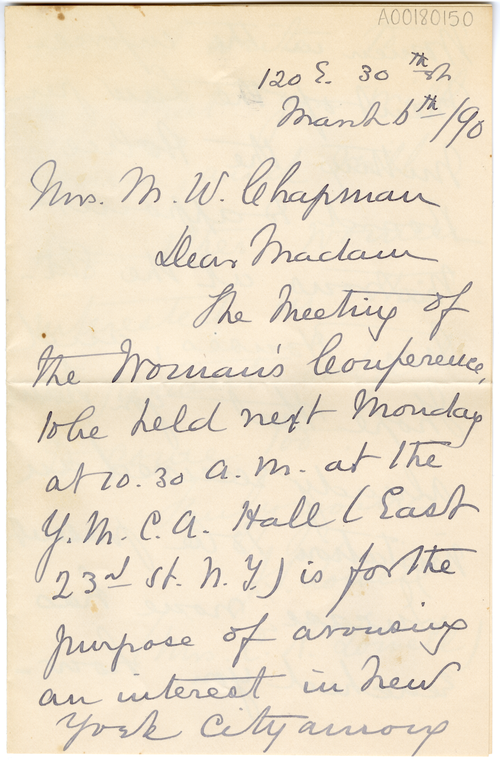 A00180150
120 E. 30th st
March 6th/90
Mrs. M. W. Chapman
Dear Madam
The Meeting of
the Woman's Conference,
to be held next Monday
at 10.30 A.M. at the
Y.M.C.A. Hall (East
23rd St. N.Y.) is for the
purpose of arousing
an interest in New
York City among